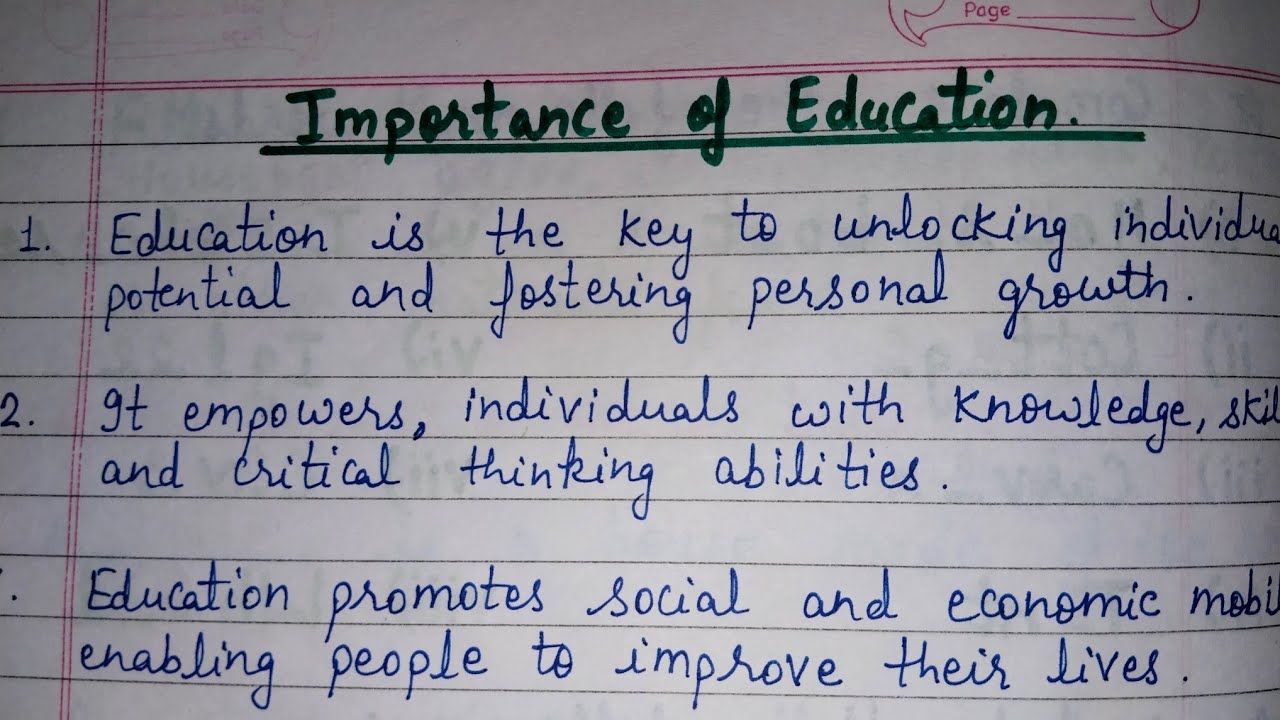 Page
Importance of Education.
1. Education is the key to unlocking individua
potential and fostering personal growth.
2. It empowers, individuals with knowledge, skil
and critical thinking abilities.
. Education promotes social and economic mobil
enabling people to improve their lives.